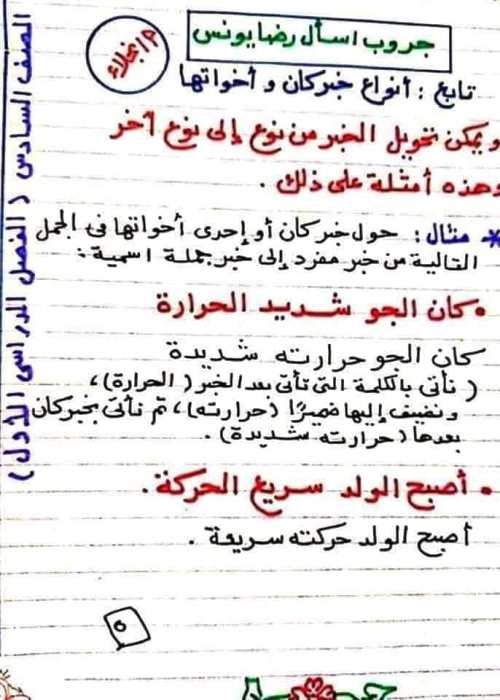 جروب اسأل رضا يونس
م/ نجلاء
تابع : أنواع خبر كان و أخواتها
و يمكن تحويل الخبر من نوع إلى نوع آخر
وهذه أمثلة على ذلك .
* مثال : حول خبر كان أو إحدى أخواتها فى الجمل
التالية من خبر مفرد إلى خبر جملة اسمية :
• كان الجو شديد الحرارة
كان الجو حرارته شديدة
( نأتى بالكلمة التى تأتى بعد الخبر ( الحرارة ) ،
و نضيف إليها ضميرًا ( حرارته ) ، ثم نأتى بخبر كان
بعدها ( حرارته شديدة ) .
• أصبح الولد سريع الحركة .
أصبح الولد حركته سريعة .
٥
الصف السادس ( الفصل الدراسى الأول )